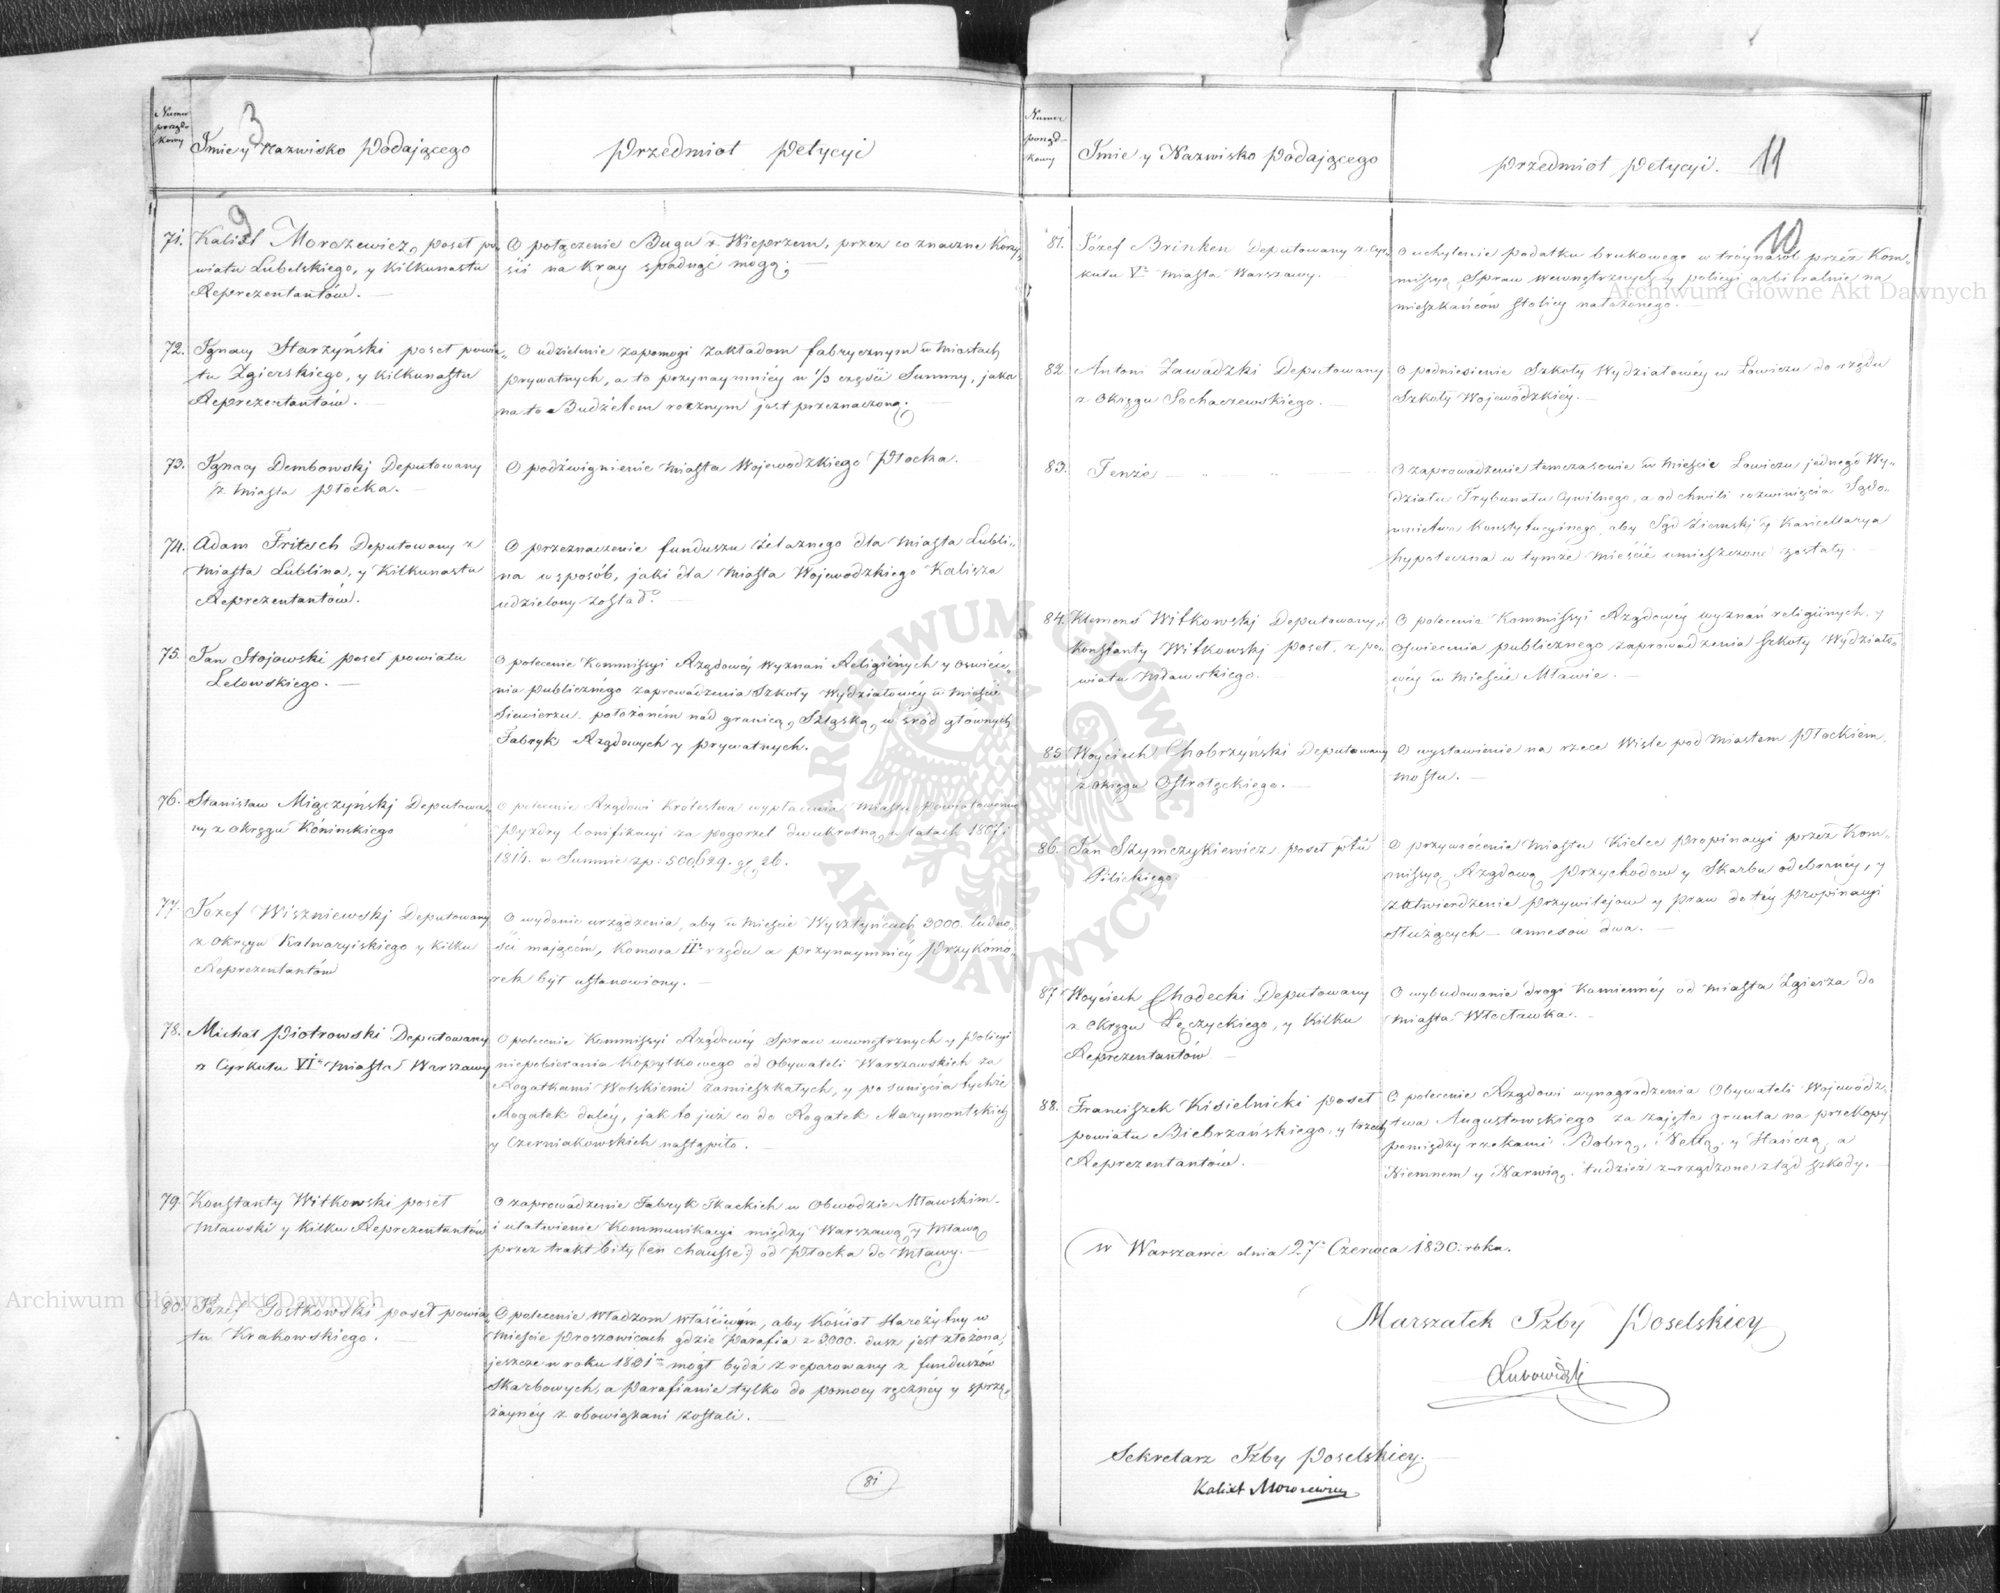 Numer
porząd-
kowy
3
Imie y Nazwisko Podaiącego
Przedmiot Petycyi
9
71. Kalixt Morozewicz, poseł po-
wiatu Lubelskiego, y kilkunastu
Reprezentantów. —
O połączenie Bugu z Wieprzem, przez co znaczne korzy-
ści na Kray spadnąć mogą; —
72. Ignacy Starzyński poseł powia-
tu Zgierskiego, y kilkunastu
Reprezentantów. —
O udzielenie zapomogi zakładom fabrycznym w Miastach
prywatnych, a to przynaymniéy w 1/3 części Summy, jaka
na to Budżetem rocznym jest przeznaczoną. —
73. Ignacy Dembowski Deputowany
z Miasta Płocka. —
O podźwignienie Miasta Wojewodzkiego Płocka. —
74. Adam Fritsch Deputowany z
Miasta Lublina, y kilkunastu
Reprezentantów.
O przeznaczenie funduszu żelaznego dla Miasta Lubli-
na w sposób, jaki dla Miasta Wojewodzkiego Kalisza
udzielony został. —
75. Jan Stojawski poseł powiatu
Lelowskiego. —
O polecenie Kommissyi Rządowéy Wyznań Religiinych y Oświece-
nia publicznego zaprowadzenia Szkoły Wydziałowéy w Mieście
Siewierzu położoném nad granicą Szląską, w śród głównych
Fabryk Rządowych y prywatnych.
76. Stanisław Miączyński Deputowa-
ny z okręgu Konińskiego
O polecenie Rządowi Królestwa wypłacenia Miastu Powiatowemu
Pyzdry bonifikacyi za pogorzel dwukrotną w latach 1807 i
1814. w Summie zp: 500,629. gr. 26.
77. Józef Wiszniewski Deputowany
z okręgu Kalwaryiskiego y kilku
Reprezentantów
O wydanie urządzenia, aby w Mieście Wysztyńcach 3000. ludno-
ści maiącém, Komora IIo rzędu a przynaymniéy Przykomó-
rek był ustanowiony. —
78. Michał Piotrowski Deputowany
z Cyrkułu VIo Miasta Warszawy
O polecenie Kommissyi Rządowéy Spraw wewnętrznych y Policyi
niepobierania Kopytkowego od Obywateli Warszawskich za
Rogatkami Wolskiemi zamieszkałych, y posunięcia tychże
Rogatek daléy, jak to już co do Rogatek Marymontskich
y Czerniakowskich nastąpiło. —
79. Konstanty Witkowski poseł
Mławski y kilku Reprezentantów
O zaprowadzenie Fabryk Tkackich w Obwodzie Mławskim
i ułatwienie Kommunikacyi między Warszawą y Mławą
przez trakt bity (en chaussé) od Płocka do Mławy. —
80. Józef Gostkowski poseł powia-
tu Krakowskiego. —
O polecenie Władzom właściwym, aby Kościoł starożytny w
Mieście Proszowicach gdzie Parafia z 3000. dusz jest złożona,
jeszcze w roku 1831m mógł bydź zreparowany z funduszów
Skarbowych, a Parafianie tylko do pomocy ręcznéy y sprzę-
żaynéy zobowiązani zostali. —
81
Numer
porząd-
kowy
Imie y Nazwisko Podaiącego
Przedmiot Petycyi.
11
10
81. Józef Brinken Deputowany z Cyr-
kułu Vo Miasta Warszawy. —
O uchylenie podatku brukowego w tróynasób przez Kom-
missyą Spraw Wewnętrznych y policyi arbitralnie na
mieszkańców stolicy nałożonego. —
82. Antoni Zawadzki Deputowany
z okręgu Sochaczewskiego. —
O podniesienie Szkoły Wydziałowéy w Łowiczu do rzędu
Szkoły Wojewódzkiéy. —
83. Tenże —
O zaprowadzenie temczasowie w Mieście Łowiczu jednego Wy-
działu Trybunału Cywilnego, a od chwili rozwinięcia Sądo-
wnictwa Konstytucyinego, aby Sąd Ziemski y Kancellarya
hypoteczna w tymże Mieście umieszczone zostały. —
84. Klemens Witkowski Deputowany, i
Konstanty Witkowski Poseł, z po-
wiatu Mławskiego. —
O polecenie Kommissyi Rządowéy wyznań religiinych, y
Oświecenia publicznego zaprowadzenia Szkoły Wydziało-
wéy w Mieście Mławie. —
85. Woyciech Chobrzyński Deputowany
z okręgu Ostrołęckiego. —
O wystawienie na rzece Wisle pod Miastem Płockiem
mostu. —
86. Jan Szymczykiewicz poseł ptu
Pilickiego. —
O przywrócenie Miastu Kielce Propinacyi przez Kom-
missyą Rządową Przychodow y Skarbu odebranéy, y
zatwierdzenie przywilejow y praw do téy propinacyi
służących — annexów dwa. —
87. Woyciech Chodecki Deputowany
z okręgu Łęczyckiego, y kilku
Reprezentantów —
O wybudowanie drogi kamiennéy od Miasta Zgierza do
Miasta Włocławka. —
88. Franciszek Kisielnicki poseł
powiatu Biebrzańskiego, y trzech
Reprezentantów. —
O polecenie Rządowi wynagrodzenia Obywateli Wojewódz-
twa Augustowskiego za zajęte grunta na przekopy
pomiędzy rzekami Bobrą, Nettą, y Hańczą, a
Niemnem y Narwią, tudzież zrządzone ztąd szkody. —
w Warszawie dnia 27. Czerwca 1830. roku.
Marszałek Izby Poselskiey
Lubowidzki
Sekretarz Izby Poselskiey. —
Kalixt Morozewicz
Archiwum Główne Akt Dawnych
Archiwum Główne Akt Dawnych
ARCHIWUM GŁÓWNE AKT DAWNYCH
WARSZAWA